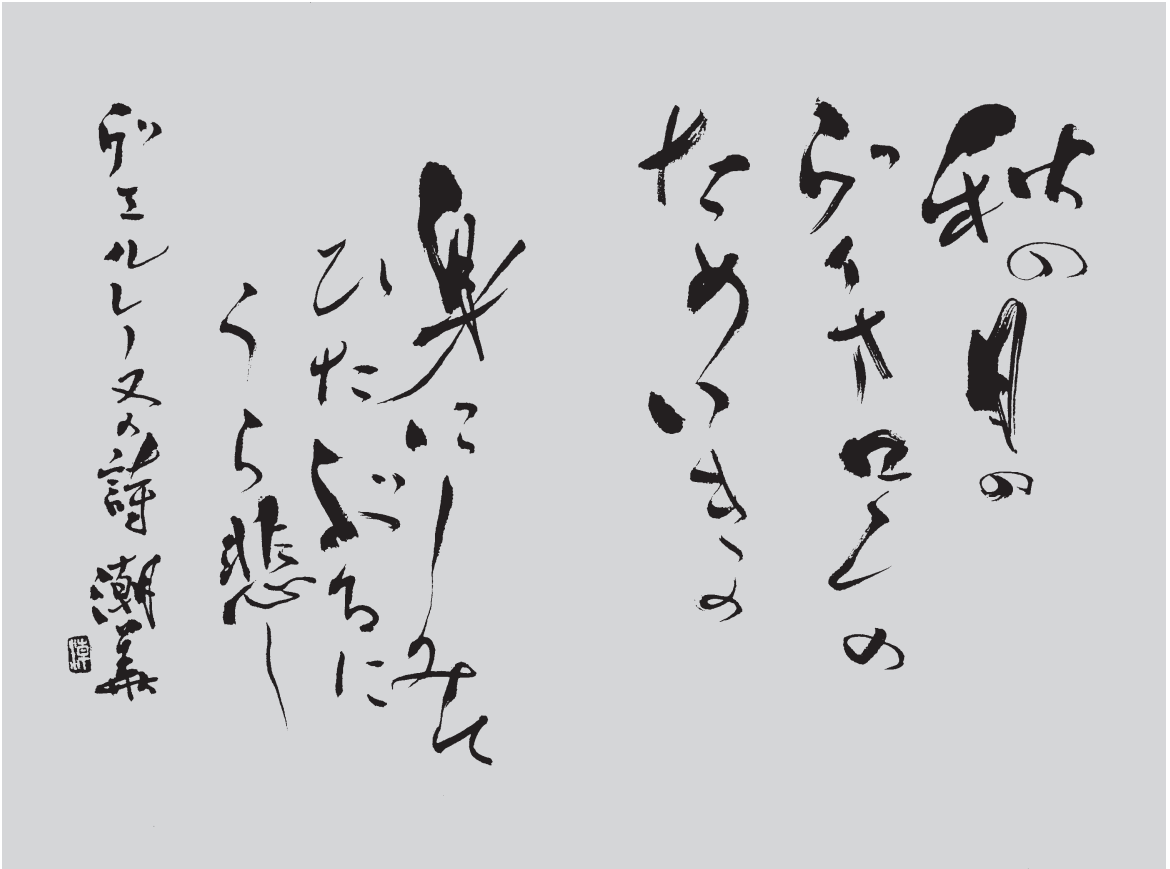 秋の日の
ヴィオロンの
ためいきの
身にしみて
ひたぶるに
うら悲し
ヴェルレーヌの詩 潮華